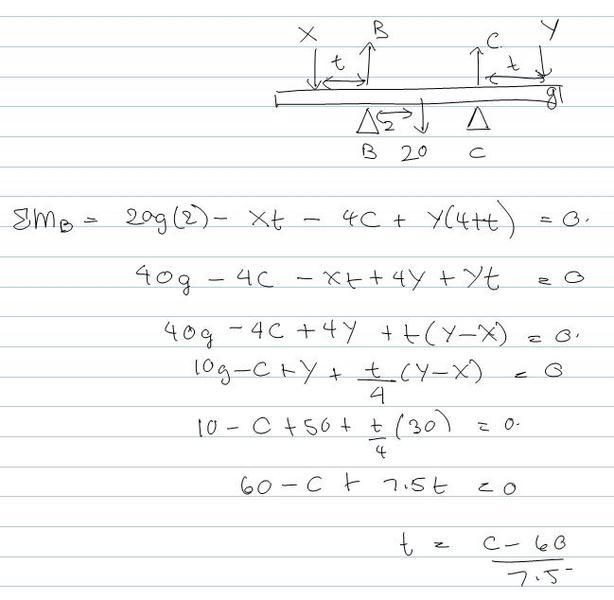 X B C Y
t t
2 g1
B 20 C
ΣM_B = 20g(2) - Xt - 4C + Y(4+t) = 0.
40g - 4C - Xt + 4Y + Yt = 0
40g - 4C + 4Y + t(Y-X) = 0.
10g - C + Y + t/4 (Y-X) = 0
10 - C + 50 + t/4 (30) = 0.
60 - C + 7.5t = 0
t = C - 60 / 7.5